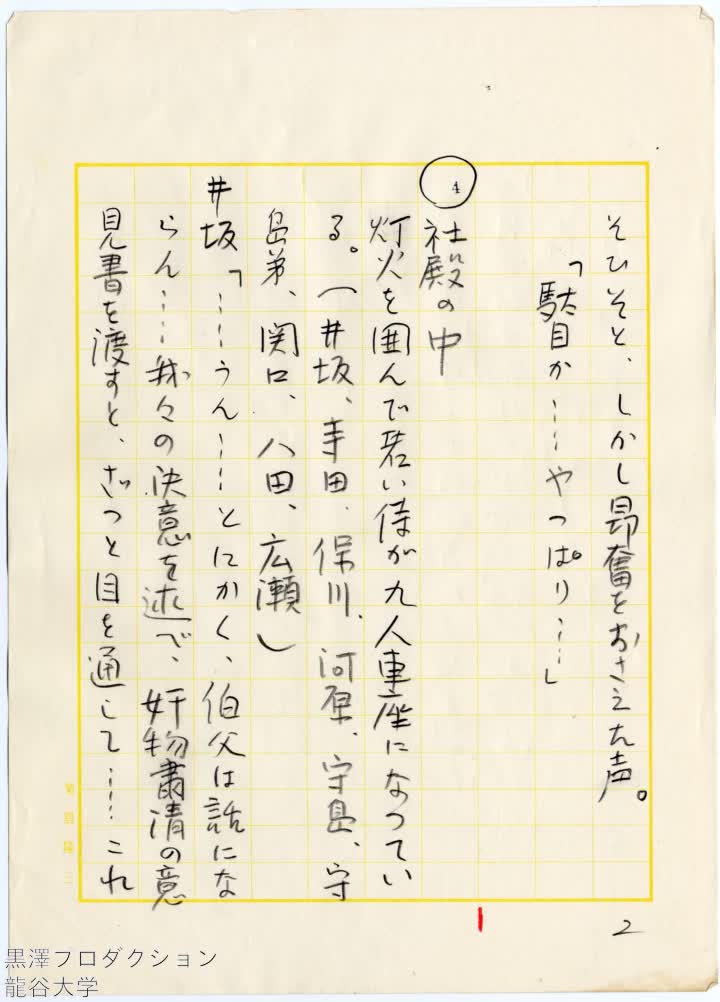 ひそひそと、しかし昂奮をおさえた声。
「駄目か……やっぱり……」
4
社殿の中
灯火を囲んで若い侍が九人車座になってい
る。（井坂、寺田、保川、河原、守島、守
島弟、関口、八田、広瀬）
井坂「……うん……とにかく、伯父は話にな
らん……我々の決意を述べ、奸物粛清の意
見書を渡すと、ざっと目を通して……これ
2
黒澤フロダクション
龍谷大学